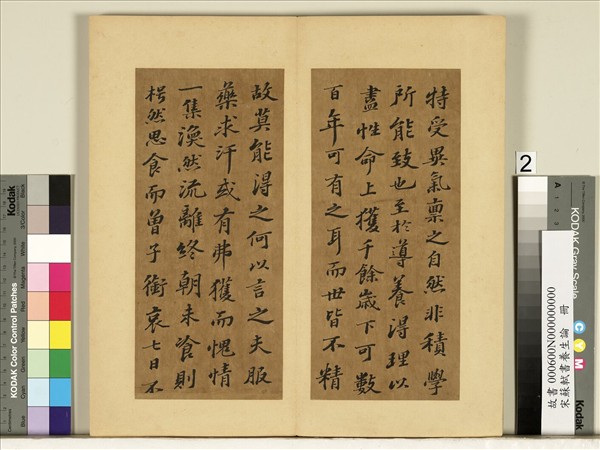 特受異氣禀之自然非積學
所能致也至於導養得理以
盡性命上獲千餘歲下可數
百年可有之耳而世皆不精
故莫能得之何以言之夫服
藥求汗或有弗獲而愧情
一集渙然流離終朝未飡則
枵然思食而曾子銜哀七日不
Kodak
KODAK Color Control Patches
2
KODAK Gray Scale
C Y M
Kodak
故書 000600N000000000
宋蘇軾書養生論 冊